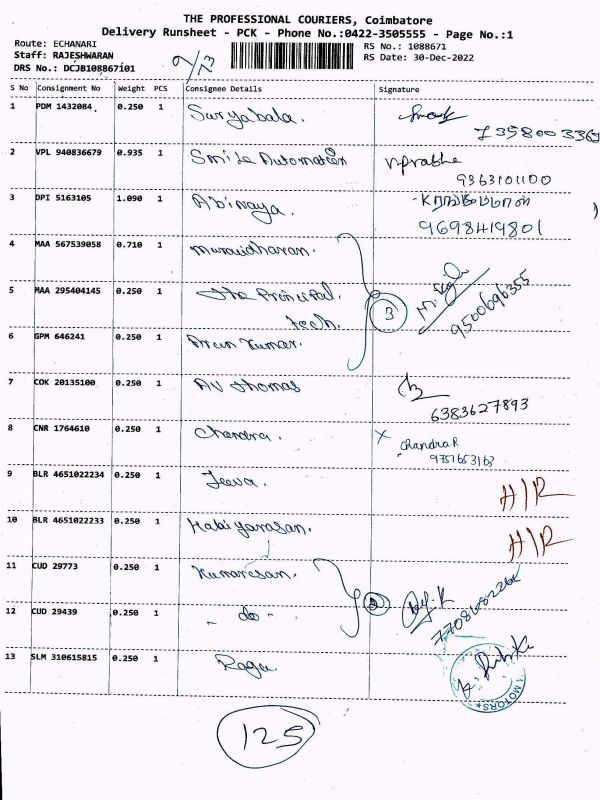 THE PROFESSIONAL COURIERS, Coimbatore
Delivery Runsheet - PCK - Phone No.:0422-3505555 - Page No.:1
Route: ECHANARI
RS No.: 1088671
Staff: RAJESHWARAN
RS Date: 30-Dec-2022
DRS No.: DCJB108867101
9/13
S No Consignment No Weight PCS Consignee Details Signature
1 PDM 1432084 0.250 1 Suryabala.
2 VPL 940836679 0.935 1 Smile Automation vprabha
9363101100
3 DPI 5163105 1.090 1 Abinaya.
9698419801
4 MAA 567539058 0.710 1 Muralidharan.
5 MAA 295404145 0.250 1 The Principal.
tech.
3
9500696355
6 GPM 646241 0.250 1 Arun Kumar.
7 COK 20135100 0.250 1 AV Thomas
6383627893
8 CNR 1764610 0.250 1 Chandra. X Chandra.R
9757653163
9 BLR 4651022234 0.250 1 Jeeva. H/R
10 BLR 4651022233 0.250 1 Kabiyarasan. H/R
11 CUD 29773 0.250 1 Kumaresan.
2
12 CUD 29439 0.250 1 - do -
13 SLM 310615815 0.250 1 Ragu.
MOTORS
125